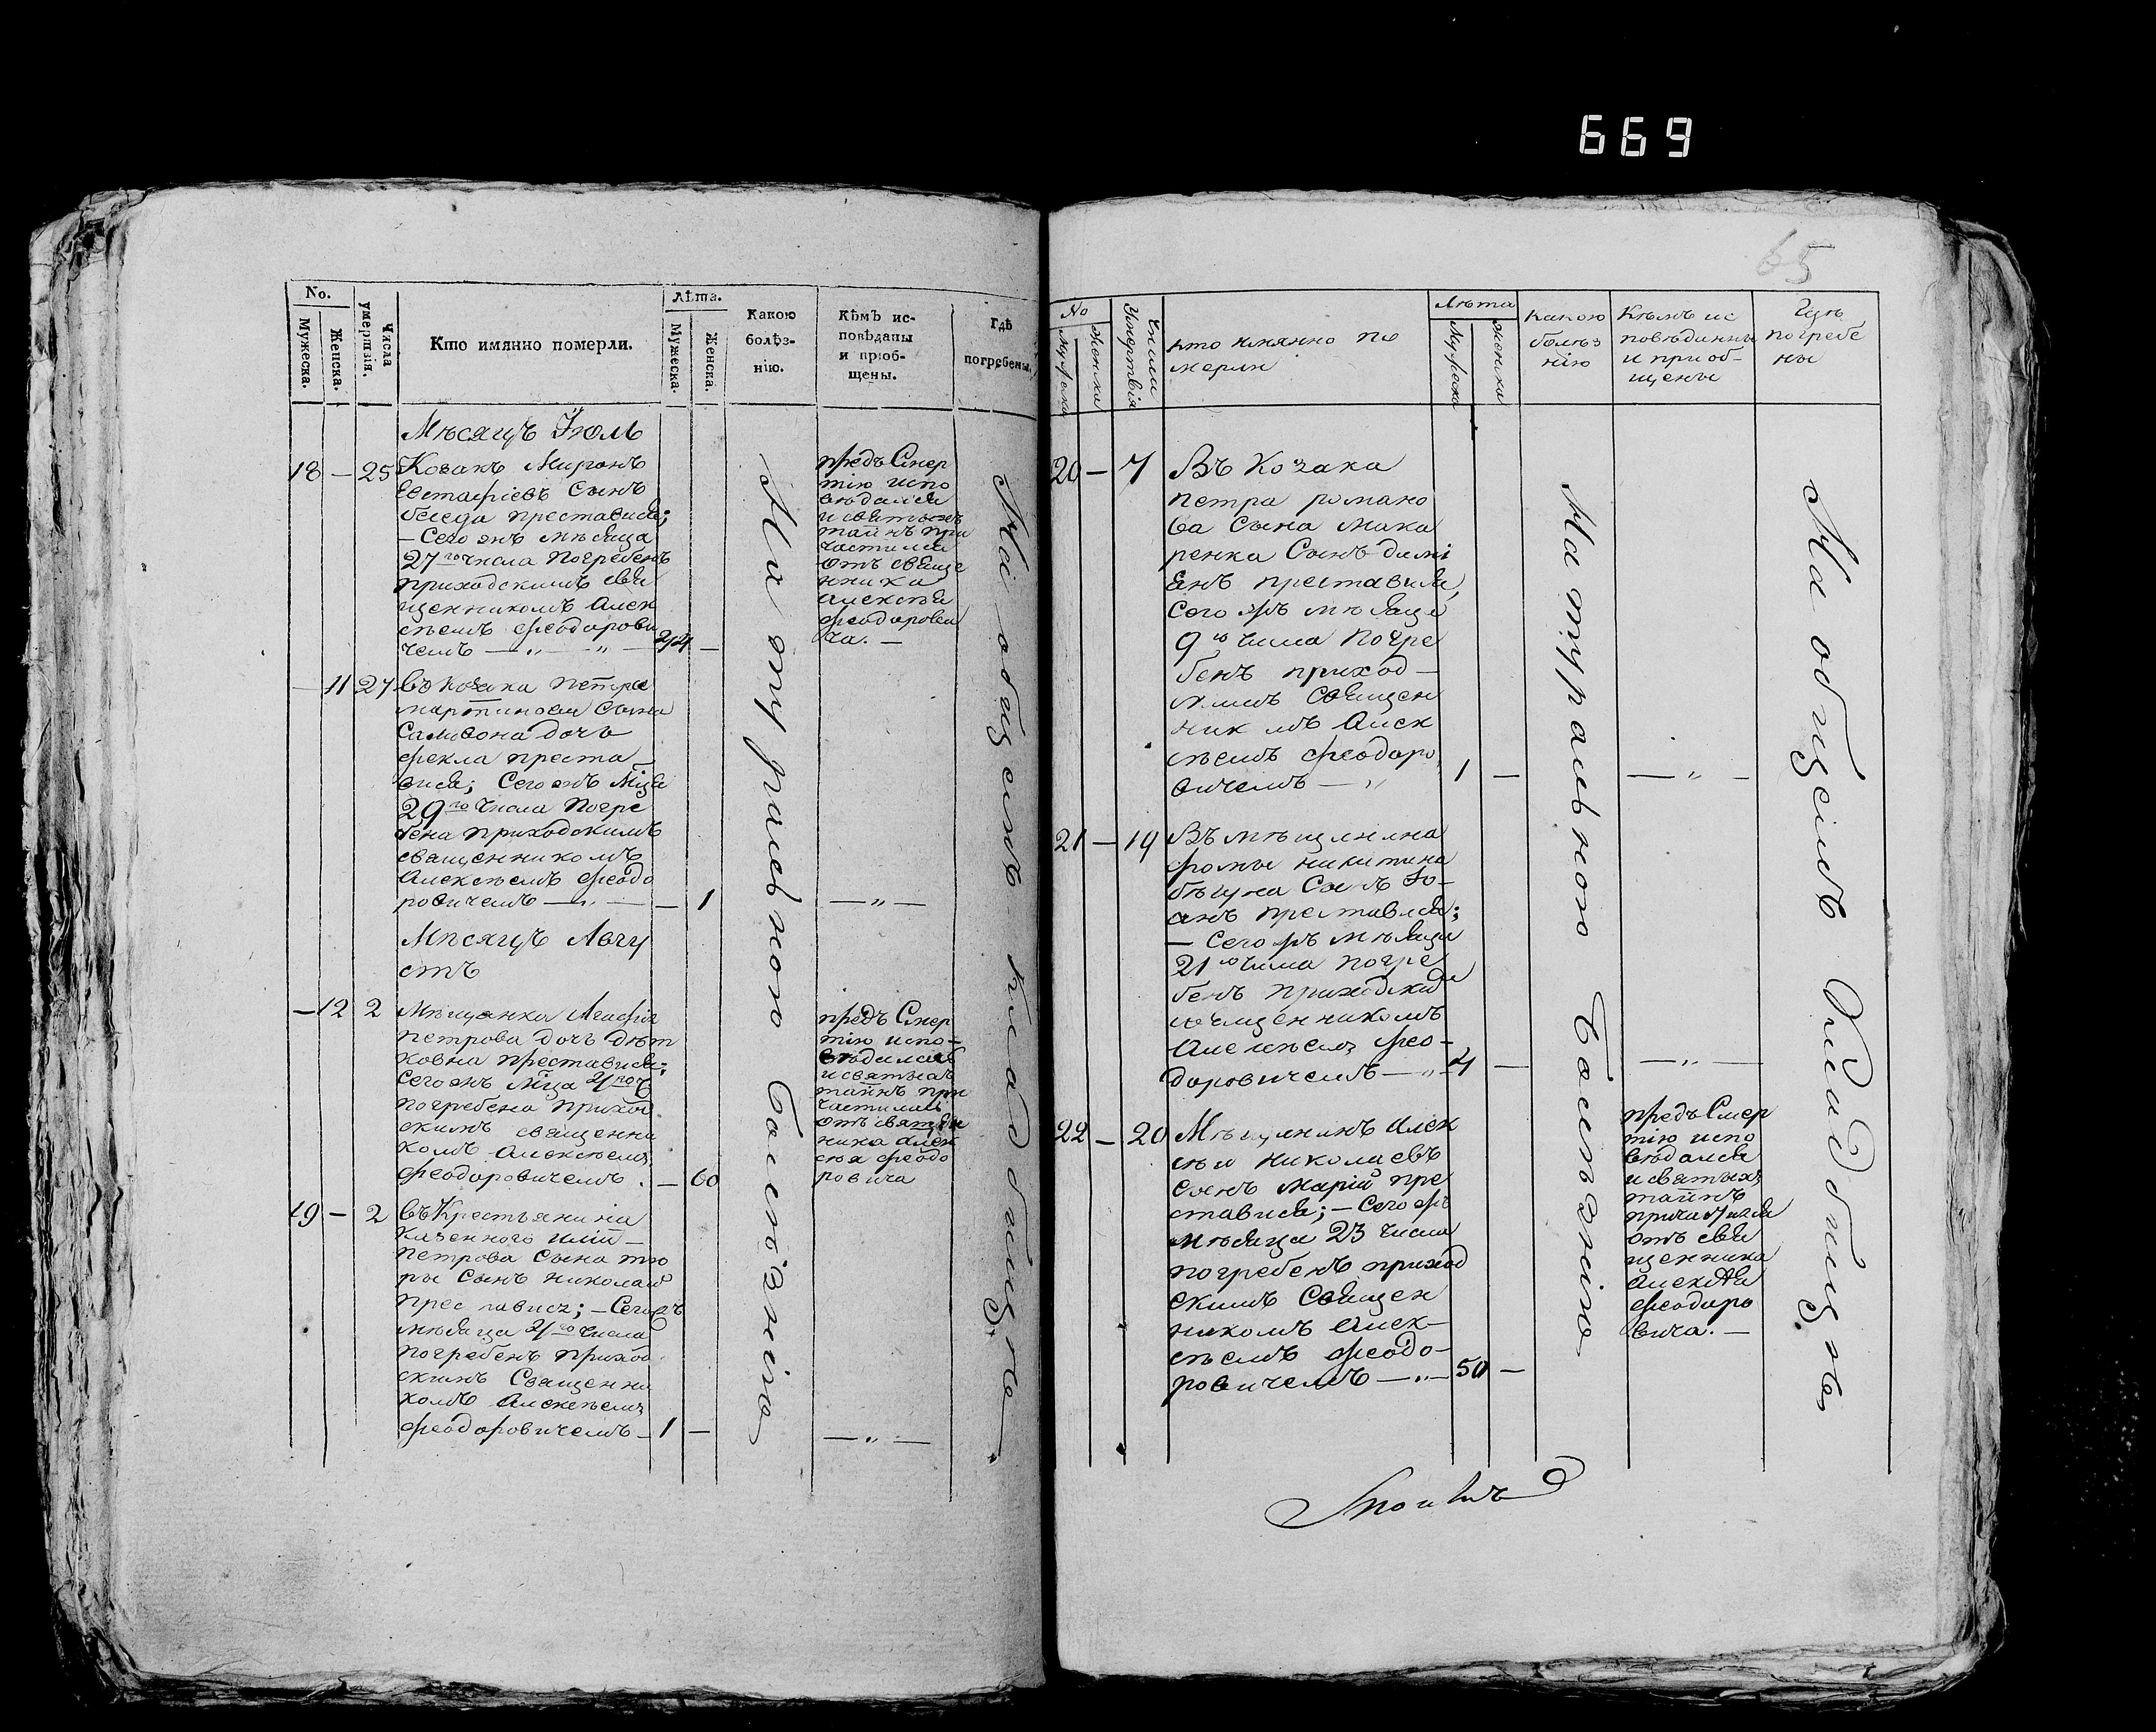 669
65
No.
Мужеска.
Женска.
Числа умертвія.
Кто имянно померли.
Лѣта.
Мужеска.
Женска.
Какою
болѣз-
нію.
Кѣмъ ис-
повѣданы
и пріоб-
щены.
Гдѣ
погребены.
Мѣсяцъ Іюль
18 — 25 Козакъ Миронъ
Евстафіевъ Сынъ
беседа преставися;
— Сего жъ мѣсяца
27го числа Погребенъ
приходскимъ свя
щенникомъ Алек
сѣемъ Феодорови
чемъ — „ — „ — 24 —
предъ Смер
тію испо
вѣдался
и святыхъ
тайнъ при
частился
отъ свяще
нника
алексѣя
феодорови
ча. —
— 11 27 въ козака петра
мартинова Сына
Самсона дочь
фекла преста
вися; Сего жъ Мца
29го Числа Погре
бена приходскимъ
священникомъ
Алексѣемъ феодо
ровичемъ — „ — — 1
— „ —
Мѣсяцъ Авгу
стъ
— 12 2 Мѣщанка Агафія
петрова дочь
ковна преставися;
Сего жъ Мца 4го ч
погребена приход
скимъ священни
комъ Алексѣемъ
феодоровичемъ . — 60
предъ Смер
тію испо-
вѣдалась
и святыхъ
тайнъ при
частилась
отъ священ
ника алек
сѣя феодо
ровича
19 — 2 въ Крестьянина
Казенного
петрова Сына
ры Сынъ николай
преставися; — Сего жъ
мѣсяца 4го числа
погребенъ приход
скимъ Священни
комъ Алексѣемъ
феодоровичемъ — 1 —
— „ —
Натуральною болѣзнію
На общемъ кладбищѣ
No
Мужеска
Женска
Числа Умертвія
кто имянно по
мерли
Лѣта
Мужеска
женска
какою
болѣз
нію
Кѣмъ ис
повѣданны
и приоб-
щены
Гдѣ
погребе
ны
20 — 7 Въ Козака
петра романо
ва Сына мака
ренка Сынъ дамі
янъ преставися,
Сего жъ мѣсяца
9го числа Погре
бенъ приход—
скимъ Священ
никомъ Алек
сѣемъ феодоро
вичемъ — „ 1 —
— „ —
21 — 19 Въ мѣщанина
фомы никитина
бѣгуна Сынъ Іо-
анъ преставися;
— Сего жъ мѣсяца
21го числа погре
бенъ Приходски
священникомъ
Алексѣемъ фео-
доровичемъ — „ — 4 —
— „ —
22 — 20 Мѣщанинъ алек
сѣи николаевъ
Сынъ Марій пре
ставися; — Сего жъ
мѣсяца 23 числа
погребенъ приход
скимъ Священ
никомъ Алек—
сѣемъ феодо-
ровичемъ — „ — 50 —
предъ Смер
тію испо
вѣдался
и святыхъ
тайнъ
причастился
отъ свя
щенника
алексѣя
феодоро
вича. —
Натуральною болѣзнію
На общемъ Кладбищѣ